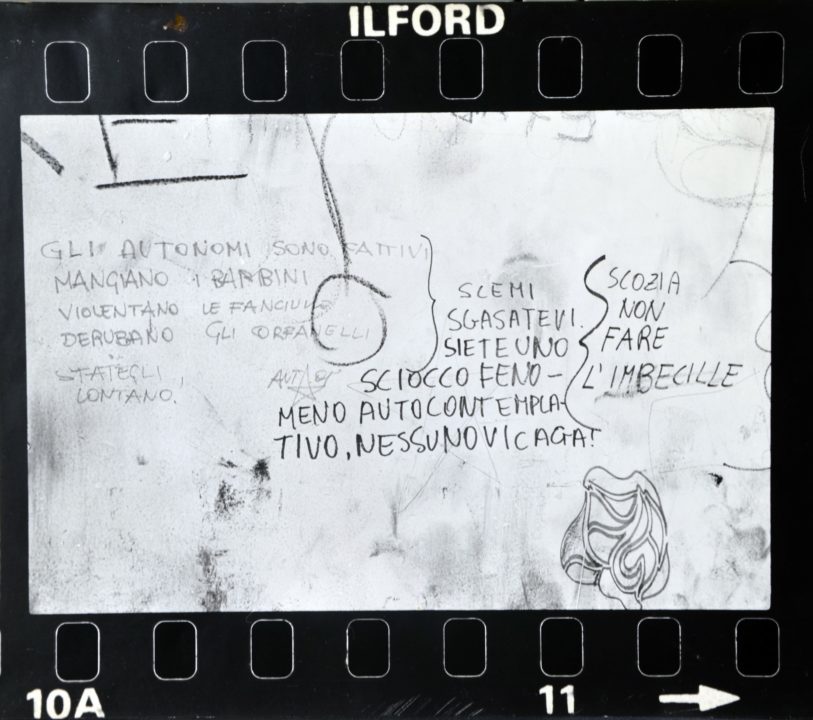 ILFORD
GLI AUTONOMI SONO CATTIVI
MANGIANO I BAMBINI
VIOLENTANO LE FANCIULLE
DERUBANO GLI ORFANELLI
STATEGLI
LONTANO.
SCEMI
SGASATEVI.
SIETE UNO
SCIOCCO FENO-
MENO AUTOCONTEMPLA-
TIVO, NESSUNO VI CAGA!
SCOZIA
NON
FARE
L'IMBECILLE
10A
11